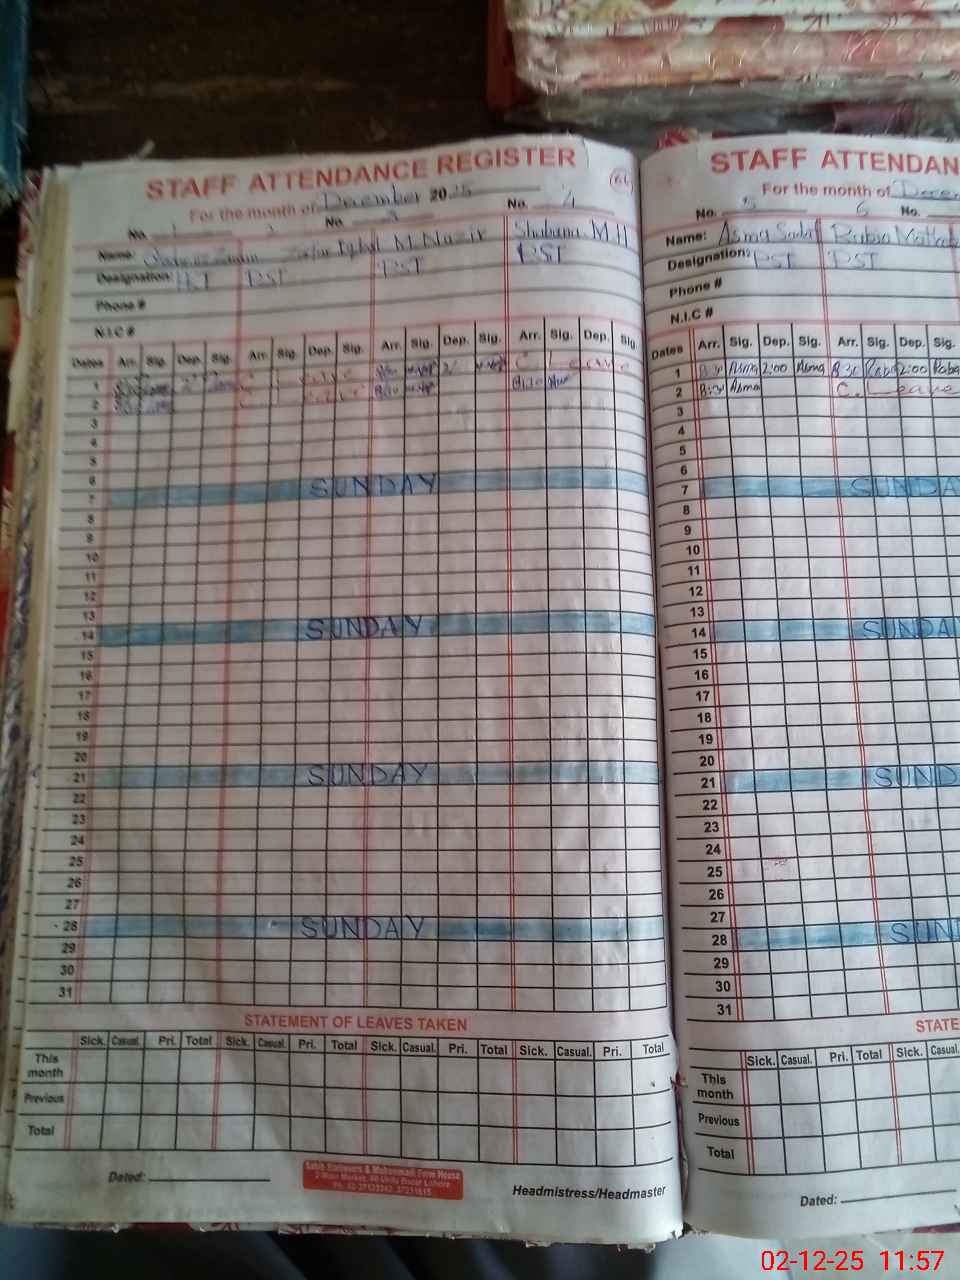 STAFF ATTENDANCE REGISTER
For the month of December 2025
66
No. 1 2 No. 3 No. 4
Name: Zafar Iqbal M. Nazir Shabana M.H
Designation: HST PST PST PST
Phone #
N.I.C #
Dates Arr. Sig. Dep. Sig. Arr. Sig. Dep. Sig. Arr. Sig. Dep. Sig. Arr. Sig. Dep. Sig.
1 C Leave C Leave
2 C Leave 8:30 8:30
3
4
5
6
7 SUNDAY
8
9
10
11
12
13
14 SUNDAY
15
16
17
18
19
20
21 SUNDAY
22
23
24
25
26
27
28 SUNDAY
29
30
31
STATEMENT OF LEAVES TAKEN
Sick. Casual. Pri. Total Sick. Casual. Pri. Total Sick. Casual. Pri. Total Sick. Casual. Pri. Total
This month
Previous
Total
Dated:
2-Main Market, 40-Urdu Bazar Lahore
Headmistress/Headmaster
STAFF ATTENDAN
For the month of Decem
No. 5 6 No.
Name: Asma Sadaf Rabia
Designation: PST PST
Phone #
N.I.C #
Dates Arr. Sig. Dep. Sig. Arr. Sig. Dep. Sig.
1 8:30 Asma 2:00 Asma 8:30 Raba 2:00 Raba
2 8:30 Asma C. Leave
3
4
5
6
7 SUNDA
8
9
10
11
12
13
14 SUNDA
15
16
17
18
19
20
21 SUND
22
23
24
25
26
27
28 SUN
29
30
31
STATE
Sick. Casual. Pri. Total Sick. Casual
This month
Previous
Total
Dated:
02-12-25 11:57